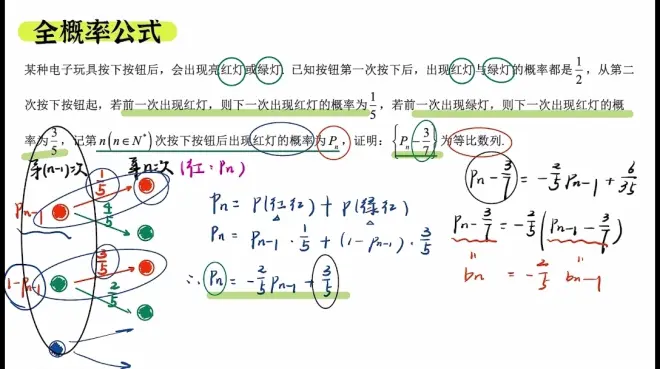 全概率公式
某种电子玩具按下按钮后，会出现亮红灯或绿灯. 已知按钮第一次按下后，出现红灯与绿灯的概率都是 1/2，从第二
次按下按钮起，若前一次出现红灯，则下一次出现红灯的概率为 1/5，若前一次出现绿灯，则下一次出现红灯的概
率为 3/5，记第 n(n∈N*) 次按下按钮后出现红灯的概率为 Pn，证明：{Pn - 3/7} 为等比数列.
第(n-1)次 第n次 (红: Pn)
Pn-1 1/5
4/5
1-Pn-1 3/5
2/5
Pn = P(红红) + P(绿红)
Pn = Pn-1 · 1/5 + (1-Pn-1) · 3/5
∴ Pn = -2/5 Pn-1 + 3/5
Pn - 3/7 = -2/5 Pn-1 + 6/35
Pn - 3/7 = -2/5 (Pn-1 - 3/7)
bn = -2/5 bn-1